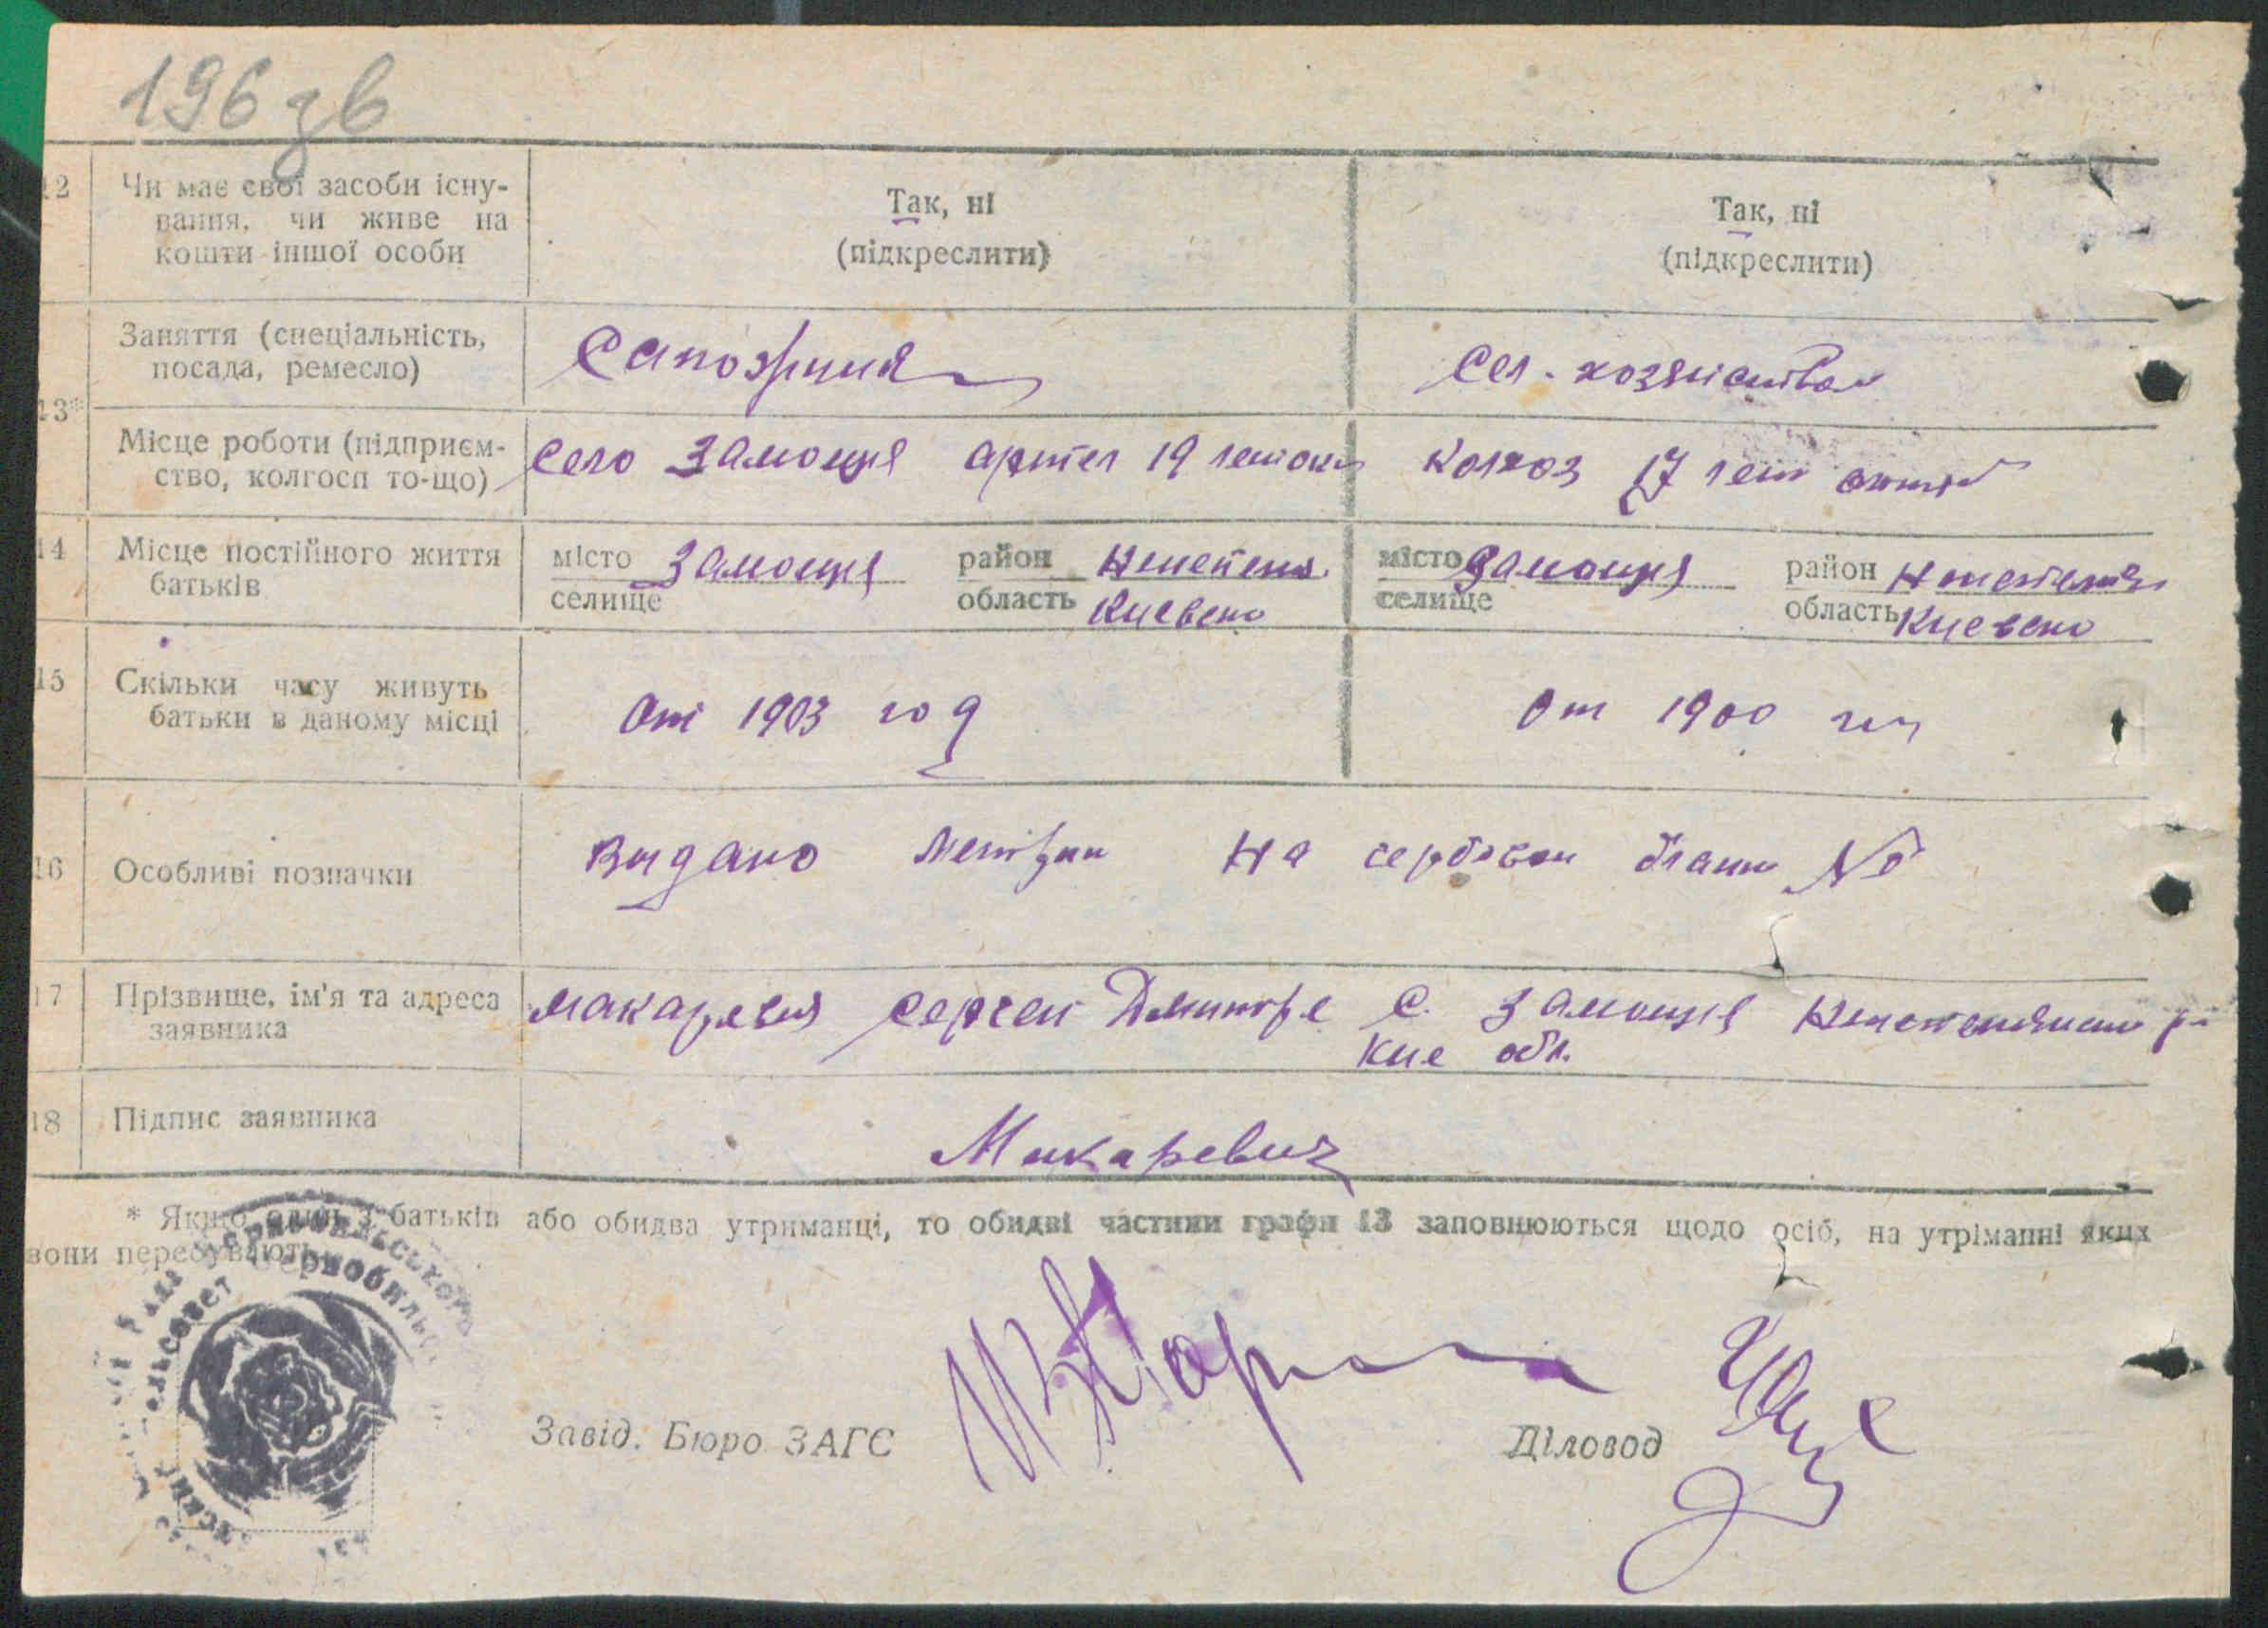 196 зв
12 Чи має свої засоби існу-
вання, чи живе на
кошти іншої особи
Так, ні
(підкреслити)
Так, ні
(підкреслити)
13* Заняття (спеціальність,
посада, ремесло)
Сапожник
Сел. хозяйство
Місце роботи (підприєм-
ство, колгосп то-що)
Село Замощня артел 19
колхоз 17 лет
14 Місце постійного життя
батьків
місто Замощня район
селище область Киевско
місто Замощня район
селище область Киевско
15 Скільки часу живуть
батьки в даному місці
От 1903 год
От 1900
16 Особливі позначки
Видано На бланк №
17 Прізвище, ім'я та адреса
заявника
Макаревич Сергей с. Замощня
Кие обл.
18 Підпис заявника
Макаревич
* Якщо один з батьків або обидва утриманці, то обидві частини графи 13 заповнюються щодо осіб, на утріманні яких
вони перебувають.
Завід. Бюро ЗАГС
Діловод